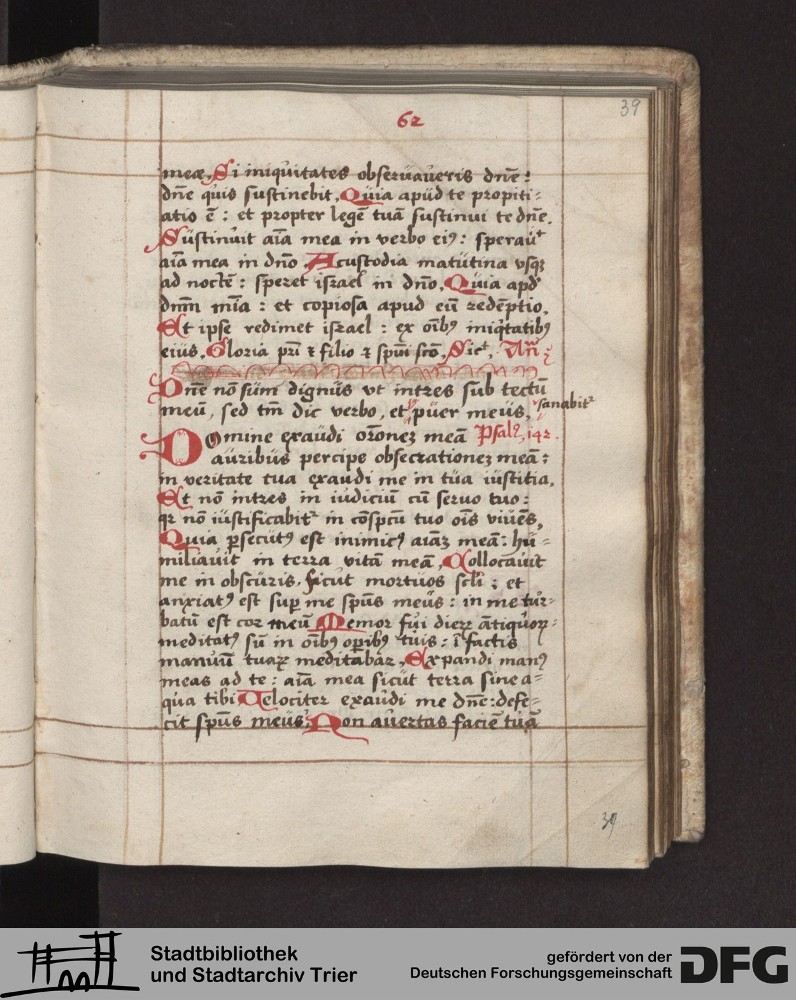 39
62
meæ, Si iniquitates obseruaueris dñe:
dñe quis sustinebit, Quia apud te propiti-
atio ē: et propter legē tuā sustinui te dñe,
Sustinuit aīa mea in verbo eiꝰ: sperauᵗ
aīa mea in dño, A custodia matutina vsqꝫ
ad noctē: speret israel in dño, Quia apᵈ
dnm mīa: et copiosa apud eū redēptio,
Et ipse redimet israel: ex oībꝰ iniqtatibꝰ
eius, Gloria pri ⁊ filio ⁊ spūi sco, Sicᵗ, Añ
Dñe nō sum dignus vt intres sub tectū
meū, sed tm̄ dic verbo, et puer meus, sanabitᷣ
Domine exaudi oronez meā Psalꝰ, 142.
auribus percipe obsecrationez meā:
in veritate tua exaudi me in tua iustitia,
Et nō intres in iudiciū cū seruo tuo:
qr nō iustificabitᷣ in cōspcū tuo oīs viuēs,
Quia psecutꝰ est inimicꝰ aīaz meā: hu-
miliauit in terra vitā meā, Collocauit
me in obscuris, sicut mortuos scli: et
anxiatꝰ est sup me spūs meus: in me tur-
batū est cor meū Memor fui dierꝝ ātiquoꝝ:
meditatꝰ sū in oībꝰ opibꝰ tuis: ī factis
manuū tuaꝝ meditabar, Expandi manꝰ
meas ad te: aīa mea sicut terra sine a-
qua tibi Velociter exaudi me dñe: defe-
cit spūs meus: Non auertas faciē tuā
39
Stadtbibliothek
und Stadtarchiv Trier
gefördert von der
Deutschen Forschungsgemeinschaft
DFG